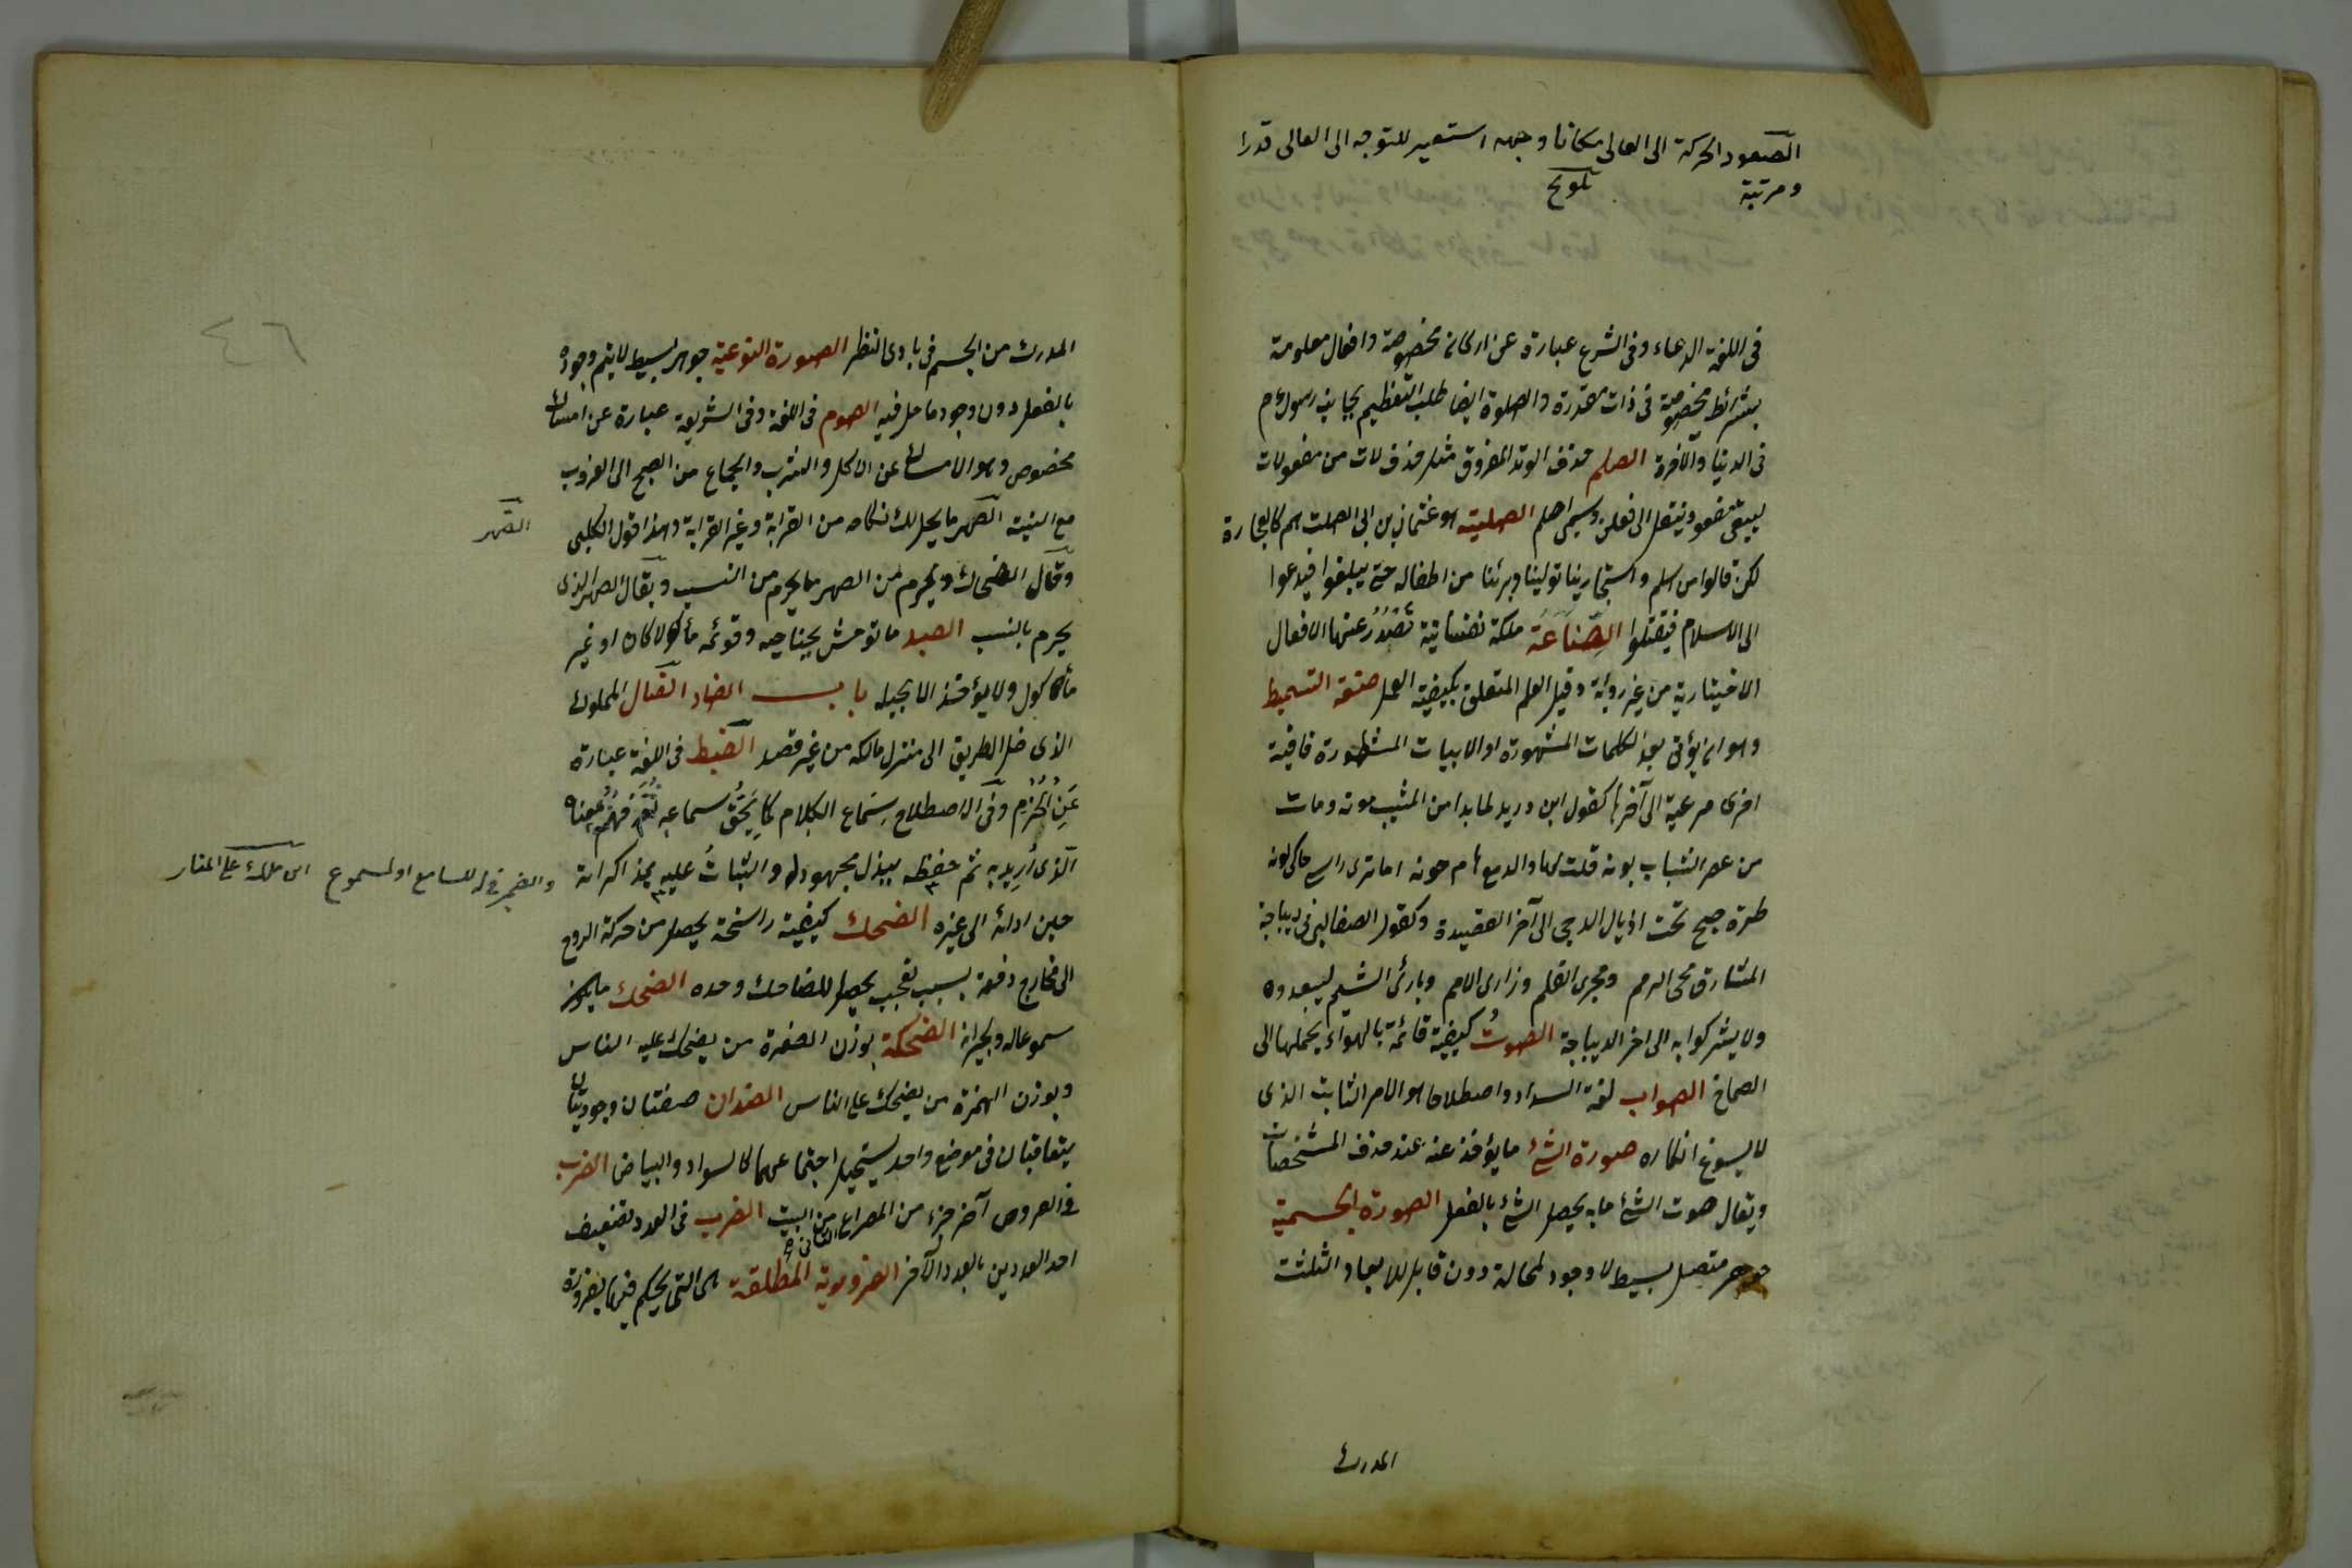 الصعود الحركة الى العالى مكانا وجهه استعير للتوجه الى العالى قدرا
ومرتبة تلويح
فى اللغة الدعاء وفى الشرع عبارة عن اركان مخصوصة وافعال معلومة
بشرائط مخصوصة فى ذات مقدرة والصلوة ايضا طلب التعظيم بجانب رسول م
فى الدنيا والآخرة الصلم حذف الوتد المفروق مثل حذف لات من مفعولات
ليبقى مفعو وينقل الى فعلن ويسمى اصلم الصلتيه هو عثمان بن ابى الصلت هم كالعجاردة
لكن قالوا من اسلم واستجار بنا تولينا وبرئنا من اطفاله حتى يبلغوا فيدعوا
الى الاسلام فيقبلوا الصِّنَاعَة ملكة نفسانية تَصْدُرُ عنها الافعال
الاختيارية من غير روية وقيل العلم المتعلق بكيفية العمل صنعة التسميط
وهو ان يؤتى بعد الكلمات المشهورة او الابيات المشطورة قافية
اخرى مرعية الى آخرها كقول ابن دريد لما بدا من المشيب صونه ومات
من عصر الشباب بونه قلت لها والدمع هام جونه اما ترى راسى حاكى لونه
طرة صبح تحت اذيال الدجى الى آخر القصيدة وكقول الصغانى فى ديباجة
المشارق محى الرمم ومجرى القلم وذارى الامم وبارئ النسم ليعبدوه
ولا يشركوا به الى اخر الديباجة الصوتُ كيفية قائمة بالهواء يحملها الى
الصماخ الصواب لغة السداد واصطلاحا هو الامر الثابت الذى
لا يسوغ انكاره صورة الشئ ما يؤخذ عنه عند حذف المشخصات
ويقال صوت الشئ ما به يحصل الشئ بالفعل الصورة الجسمية
جوهر متصل بسيط لا وجود لمحله دون قابل للابعاد الثلثة
المدرك
٤٦
المدرك من الجسم فى بادى النظر الصورة النوعية جوهر بسيط لا يتم وجوده
بالفعل دون وجود ما حل فيه الصوم فى اللغة وفى الشريعة عبارة عن امساك
مخصوص وهو الامساك عن الاكل والشرب والجماع من الصبح الى الغروب
مع النية الصهر ما يحل لك نكاحه من القرابة وغير القرابة وهذا قول الكلبى
الصهر
وقال الضحاك ويحرم من الصهر ما يحرم من النسب ويقال الصهر الذى
يحرم بالنسب الصيد ما توحش بجناحيه وقوئمه مأكولا كان او غير
مأكول ولا يؤخذ الا بحيلة باب الضاد الضال المملوك
الذى ضل الطريق الى منزل مالكه من غير قصد الضبط فى اللغة عبارة
عَنِ الحَزْمِ وفى الاصطلاح سِمَاع الكلام كما يَحِقُّ سماعه ثُمَّ فَهْمُ معناه
الذى اُرِيد به ثم حفظه ببذل مجهوده والثباتُ عليه بمذاكراته
والضمير فى له للسامع او المسموع
حين ادائه الى غيره الضحك كيفية راسخة يحصل من حركة الروح
الى خارج دفعة بسبب تعجب يحصل للضاحك وحده الضحك ما يكون
مسموعا له ولجيرانه الضحكة بوزن الصفرة من يضحك عليه الناس
وبوزن الهمزة من يضحك على الناس الضدان صفتان وجوديتان
يتعاقبان فى موضع واحد يستحيل اجتماعهما كالسواد والبياض الضرب
فى العروض آخر جزء من المصراع الثانى من البيت الضرب فى العدد تضعيف
احد العددين بالعدد الآخر الضرورية المطلقة هى التى يحكم فيها بضرورة